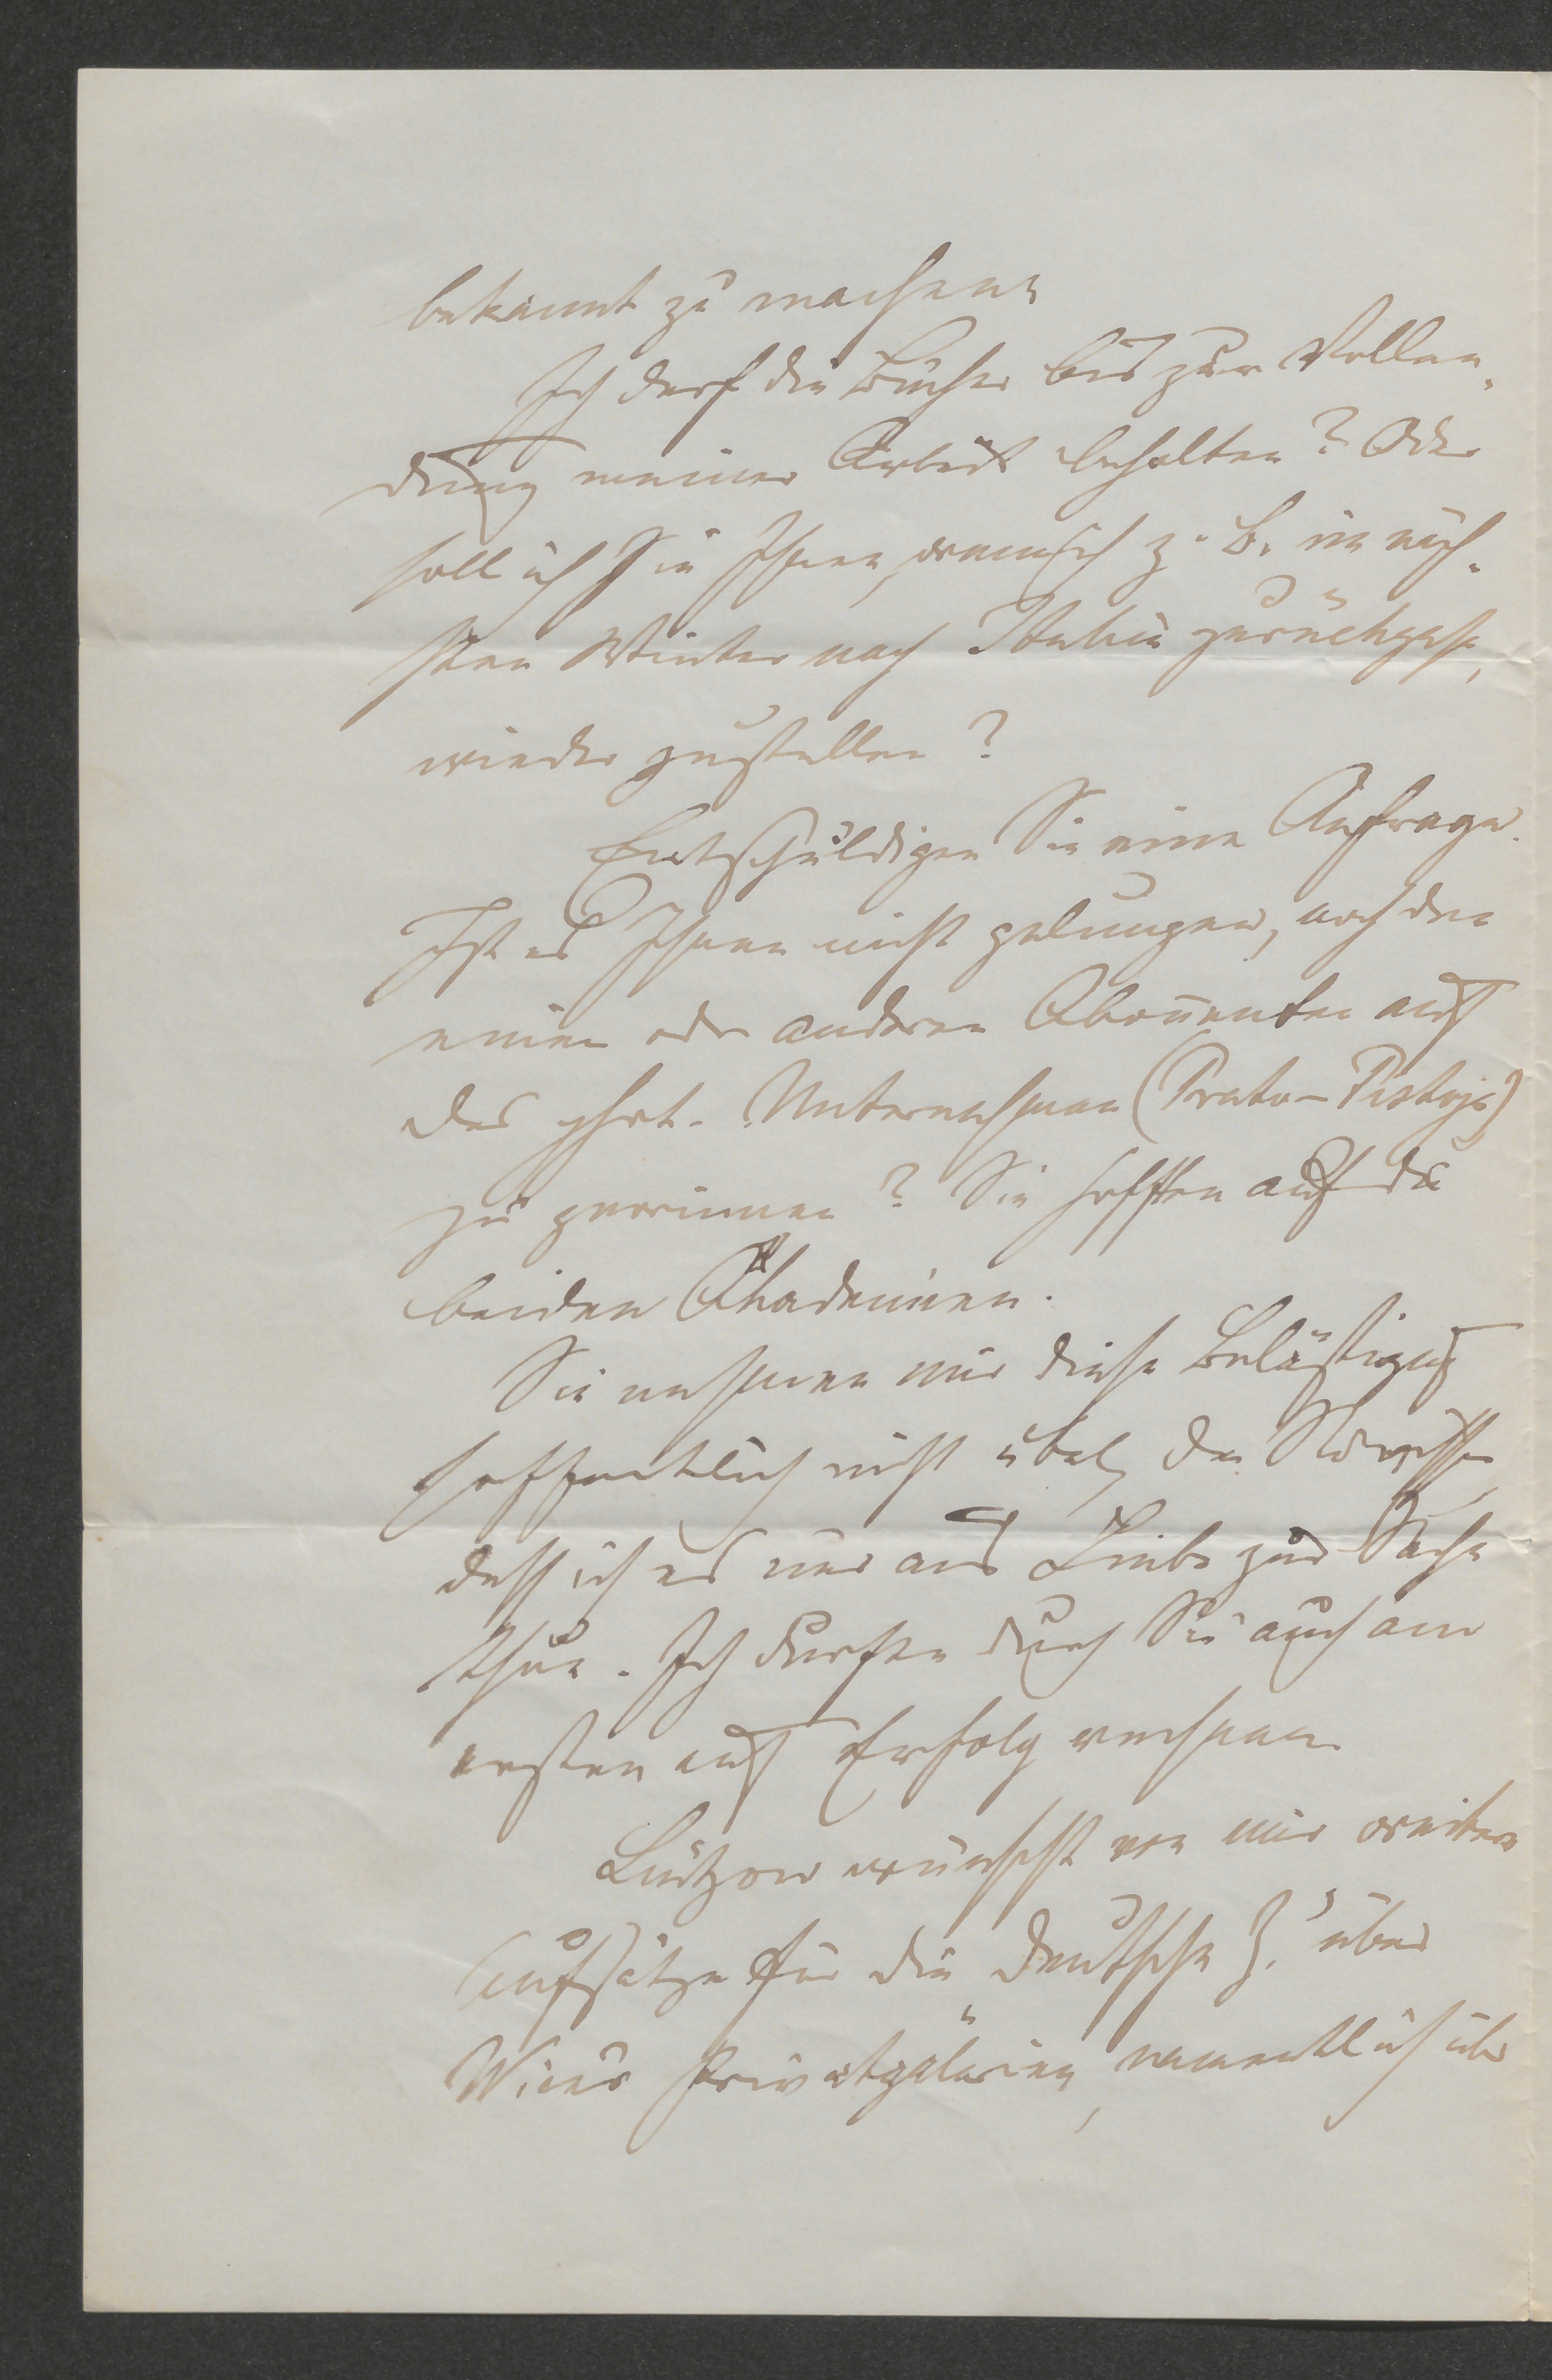 bekannt zu machen.
Ich darf die Bücher bis zur Vollen-
dung meiner Arbeit behalten? Oder
soll ich sie Ihnen, wenn ich z. B. im näch-
sten Winter nach Italien zurückgehe,
wieder zustellen?
Entschuldigen Sie eine Anfrage.
Ist es Ihnen nicht gelungen, noch den
einen oder anderen Abonnenten auf
das phot. Unternehmen (Prato-Pistoja)
zu gewinnen? Sie hofften auf die
beiden Akademien.
Sie nehmen mir diese Belästigung
hoffentlich nicht übel, da Sie wissen,
dass ich es nur aus Liebe zur Sache
thue. Ich durfte durch Sie auch am
ersten auf Erfolg rechnen.
Lützow wünscht von mir weitere
Aufsätze für die „Deutsche Z." über
Wien's Privatgalerien, namentlich über